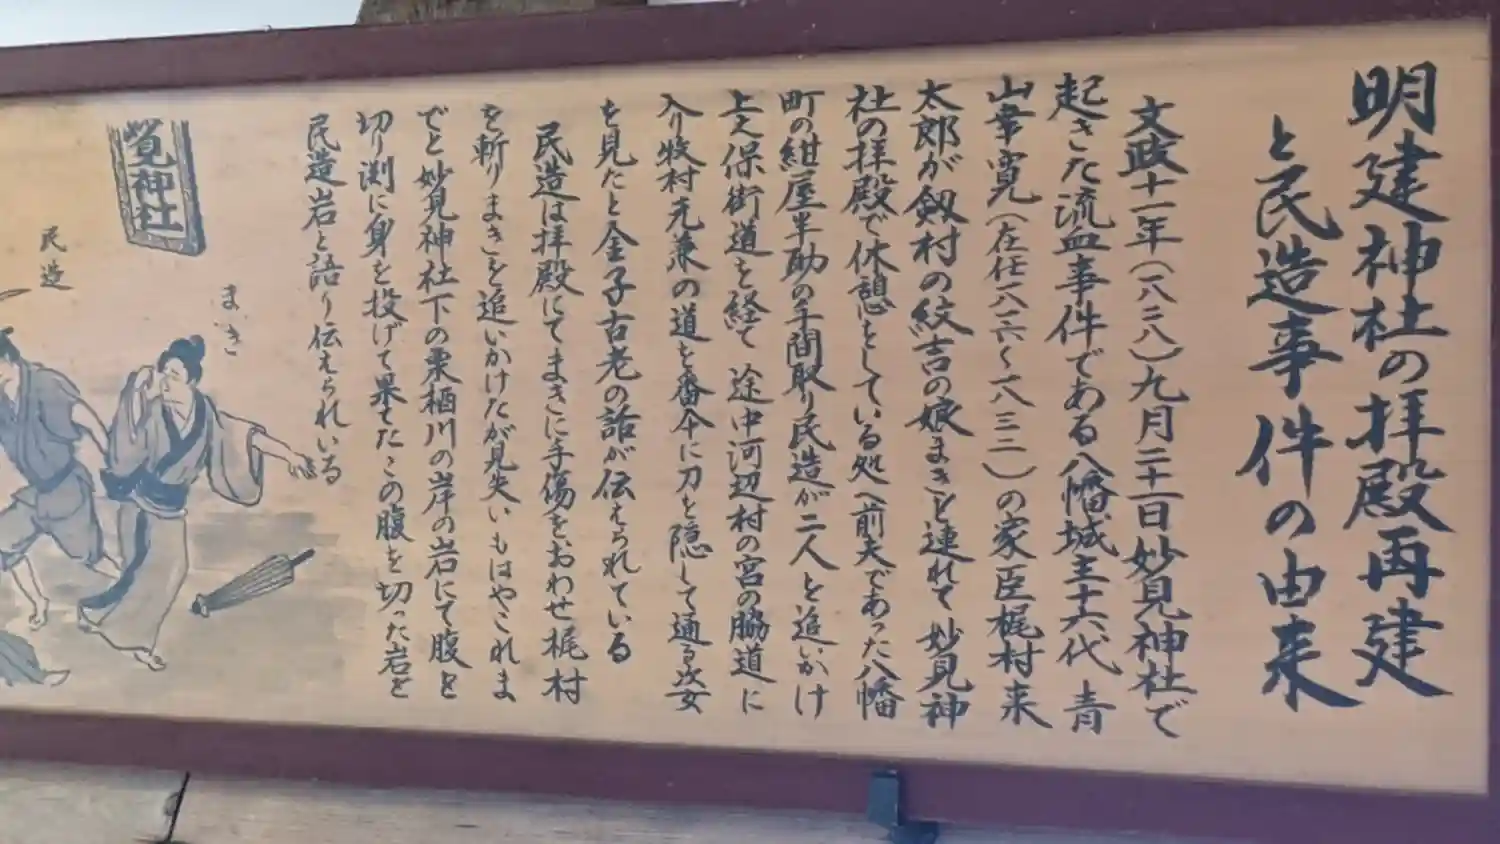 明建神社の拝殿再建
と民造事件の由来
文政十一年(一八二八)九月二十一日妙見神社で
起きた流血事件である八幡城主十六代 青
山幸寛(在任一八一六〜一八三二)の家臣梶村来
太郎が剱村の紋吉の娘まきを連れて 妙見神
社の拝殿で休憩をしている処へ前夫であった八幡
町の紺屋半助の手間取り民造が二人を追いかけ
上之保街道を経て 途中河辺村の宮の脇道に
入り牧村 兼の道を番傘に刀を隠して通る姿
を見たと金子古老の話が伝えられている
民造は拝殿にてまきに手傷をおわせ梶村
を斬りまきを追いかけたが見失いもはやこれま
でと 妙見神社下の栗栖川の岸の岩にて腹を
切り渕に身を投げて果てたこの腹を切った岩を
民造岩と語り伝えられいる
覚神社
まき
民造